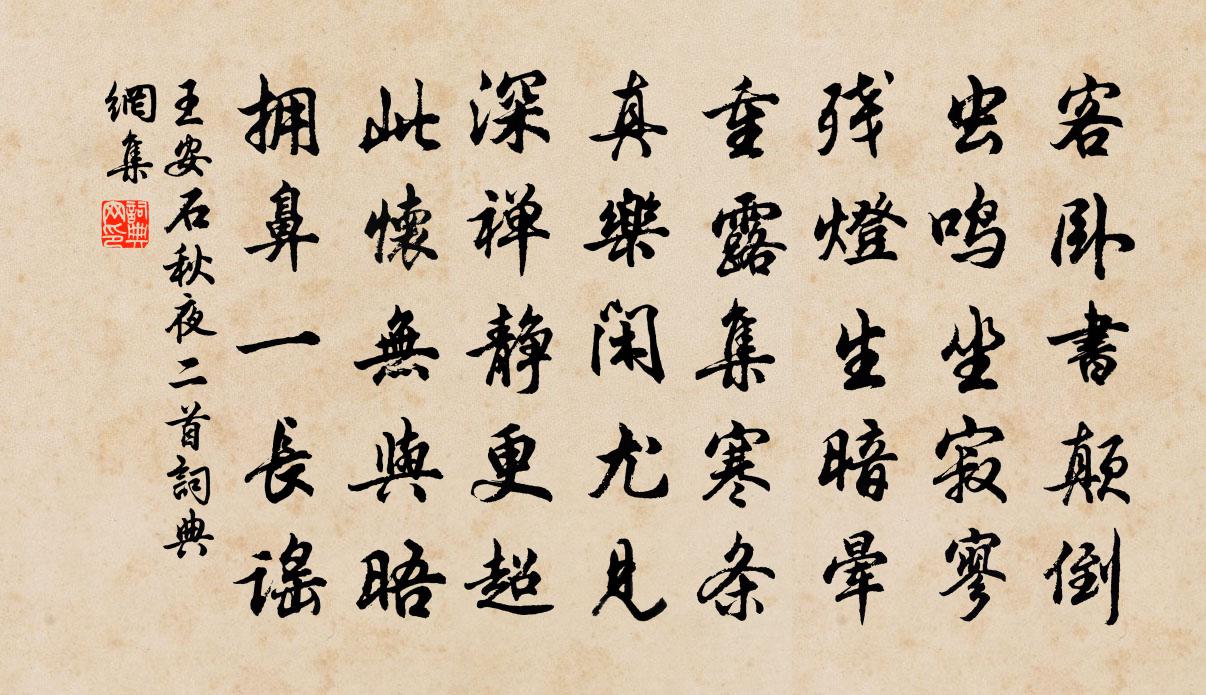 客卧書顛倒
虫鸣坐寂寥
残燈生暗暈
重露集寒条
真樂閑尤見
深禅静更超
此懷無與晤
拥鼻一長謠
王安石秋夜二首詞典
網集
詞典
网印